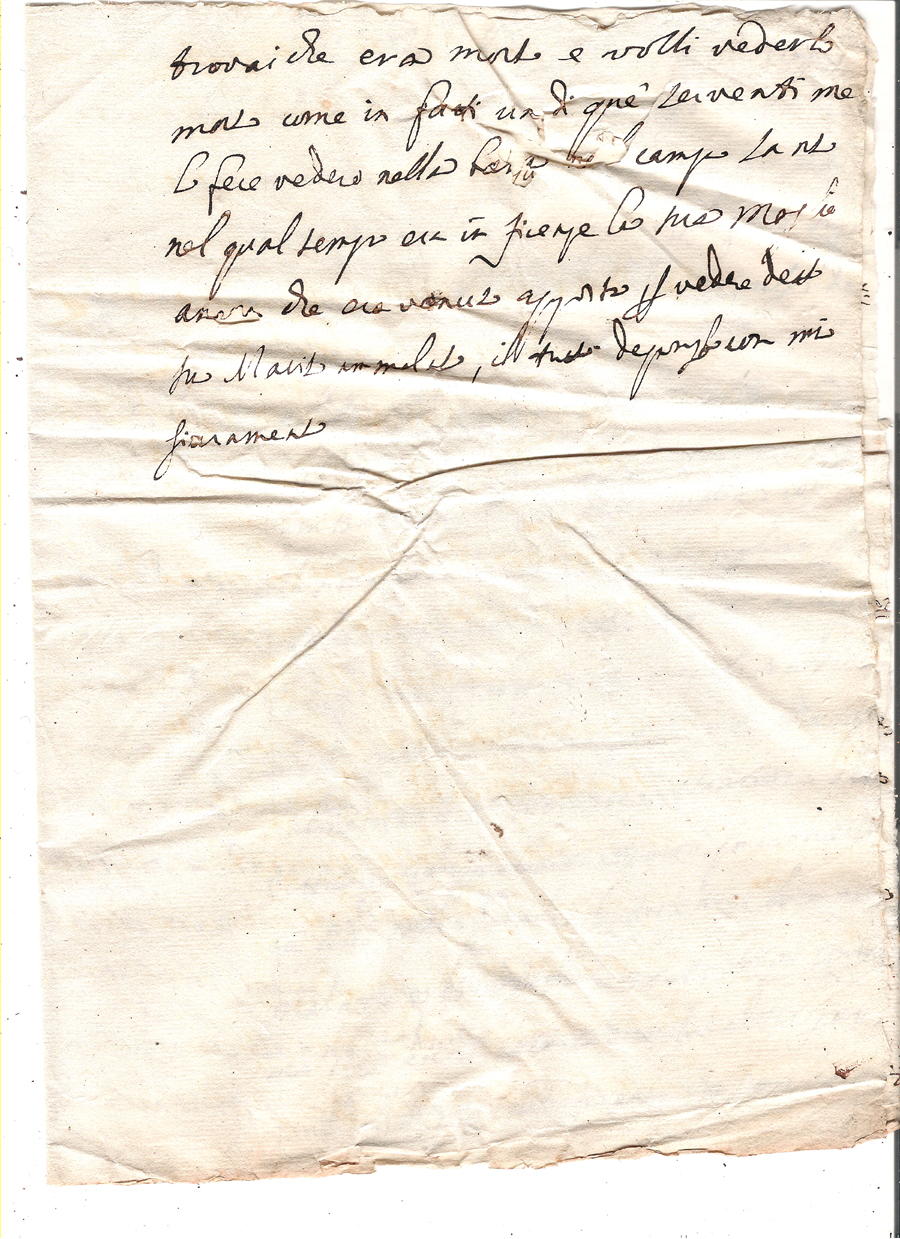 trovai che era morto e volli vederlo
morto come in fatti un di que serventi me
lo fece vedere nella bara nel campo santo
nel qual tempo era in firenze la sua Moglie
ancora che era venuta apposta p vedere detto
suo Marito ammalato, il tutto depongo con mio
giuramento